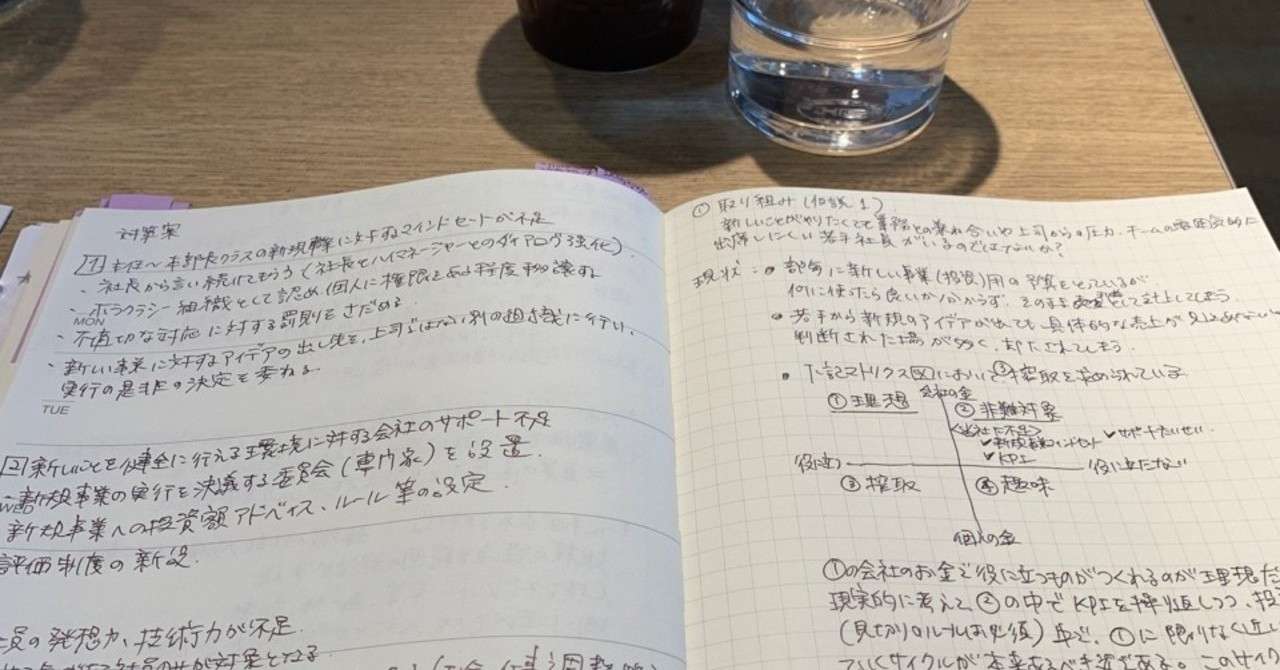 対策案
1 主任〜本部長クラスの新規事業に対するマインドセットが不足
・社長から言い続けてもらう(社長とハイマネージャーとのダイアログ強化)
・ホラクラシー組織として認め個人に権限をある程度移譲する
MON
・不適切な対応に対する罰則をさだめる
・新しい事業に対するアイデアの出し先を、上司ではない別の組織に行い、
実行の是非の決定を委ねる
TUE
2 新しいことを健全に行える環境に対する会社のサポート不足
WED
新規事業の実行を決議する委員会(専門家)を設置
新規事業への投資額アドバイス、ルール等の設定
評価制度の新設
員の発想力、技術力が不足
① 取り組み(仮説1)
新しいことがやりたくても業務との兼ね合いや上司からの圧力、チームの
出席しにくい若手社員がいるのではないか?
現状:・部毎に新しい事業(投資)用の予算をとっているが
何に使ったら良いか分からず、そのまま して計上してしまう
・若手から新規のアイデアが出ても具体的な売上が見込めない
判断された場が多く、却下されてしまう
・下記マトリクス図において③搾取を求められている
会社の金
① 理想
② 非難対象
<当社に不足>
✓サポートたいせい
✓新規事業マインドセット
✓KPI
役に立つ
役に立たない
③ 搾取
④ 趣味
個人の金
①の会社のお金で役に立つものがつくれるのが理想だ
現実的に考えて②の中でKPIを繰り返しつつ、投
(見切りのルールは必須)並で、①に限りなく近い
ていくサイクルが本来あるべき姿である。このサイク